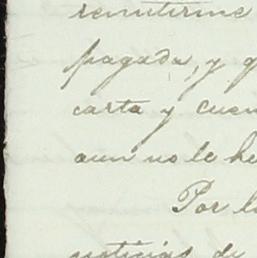 remitirme
pagada, y q
carta y cuen
aun no le he
Por l
noticias de